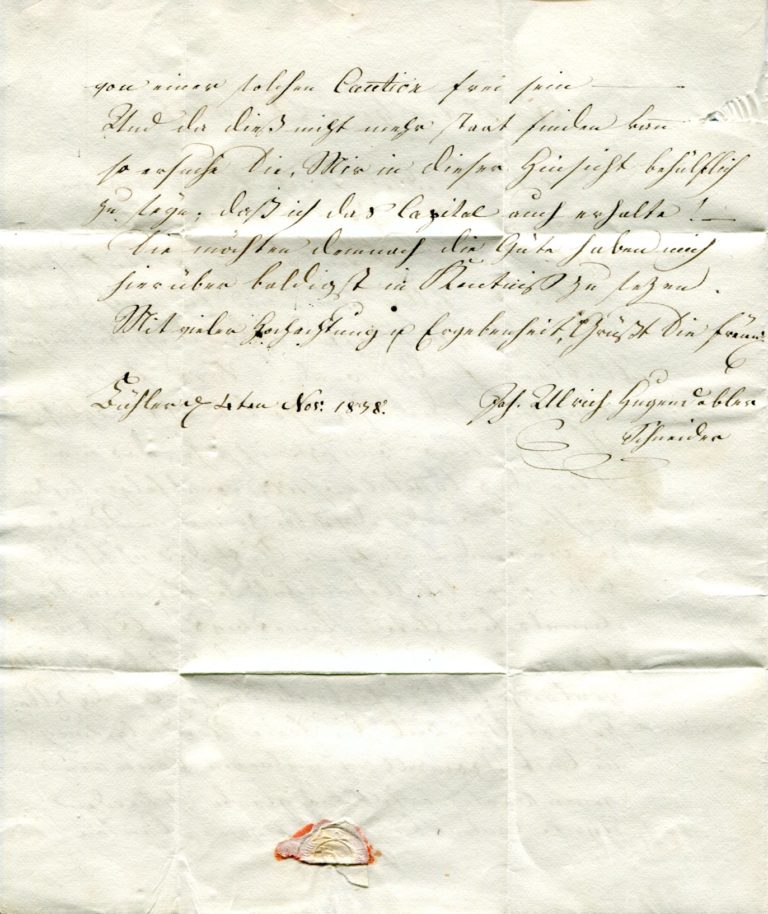 von einer solchen Caution frei sein —
Und da dieß nicht mehr statt finden kan
so ersuche Sie, Mir in dieser Hinsicht behülflich
zu seyn, daß ich das Capital auch erhalte! —
Sie möchten demnach die Güte haben mich
hierüber baldigst in Kentniß zu setzen.
Mit vieler Hochachtung & Ergebenheit, Grüßt Sie
Bühler d 4ten Nov. 1838.
Joh. Ulrich Hugendobler
Schneider